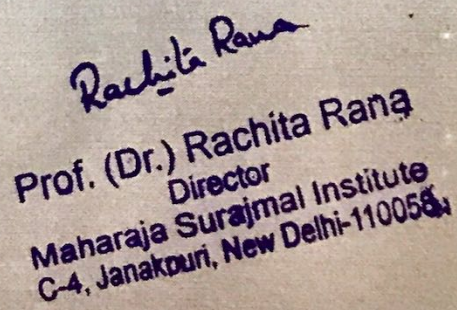 Rachita Rana
Prof. (Dr.) Rachita Rana
Director
Maharaja Surajmal Institute
C-4, Janakpuri, New Delhi-110058